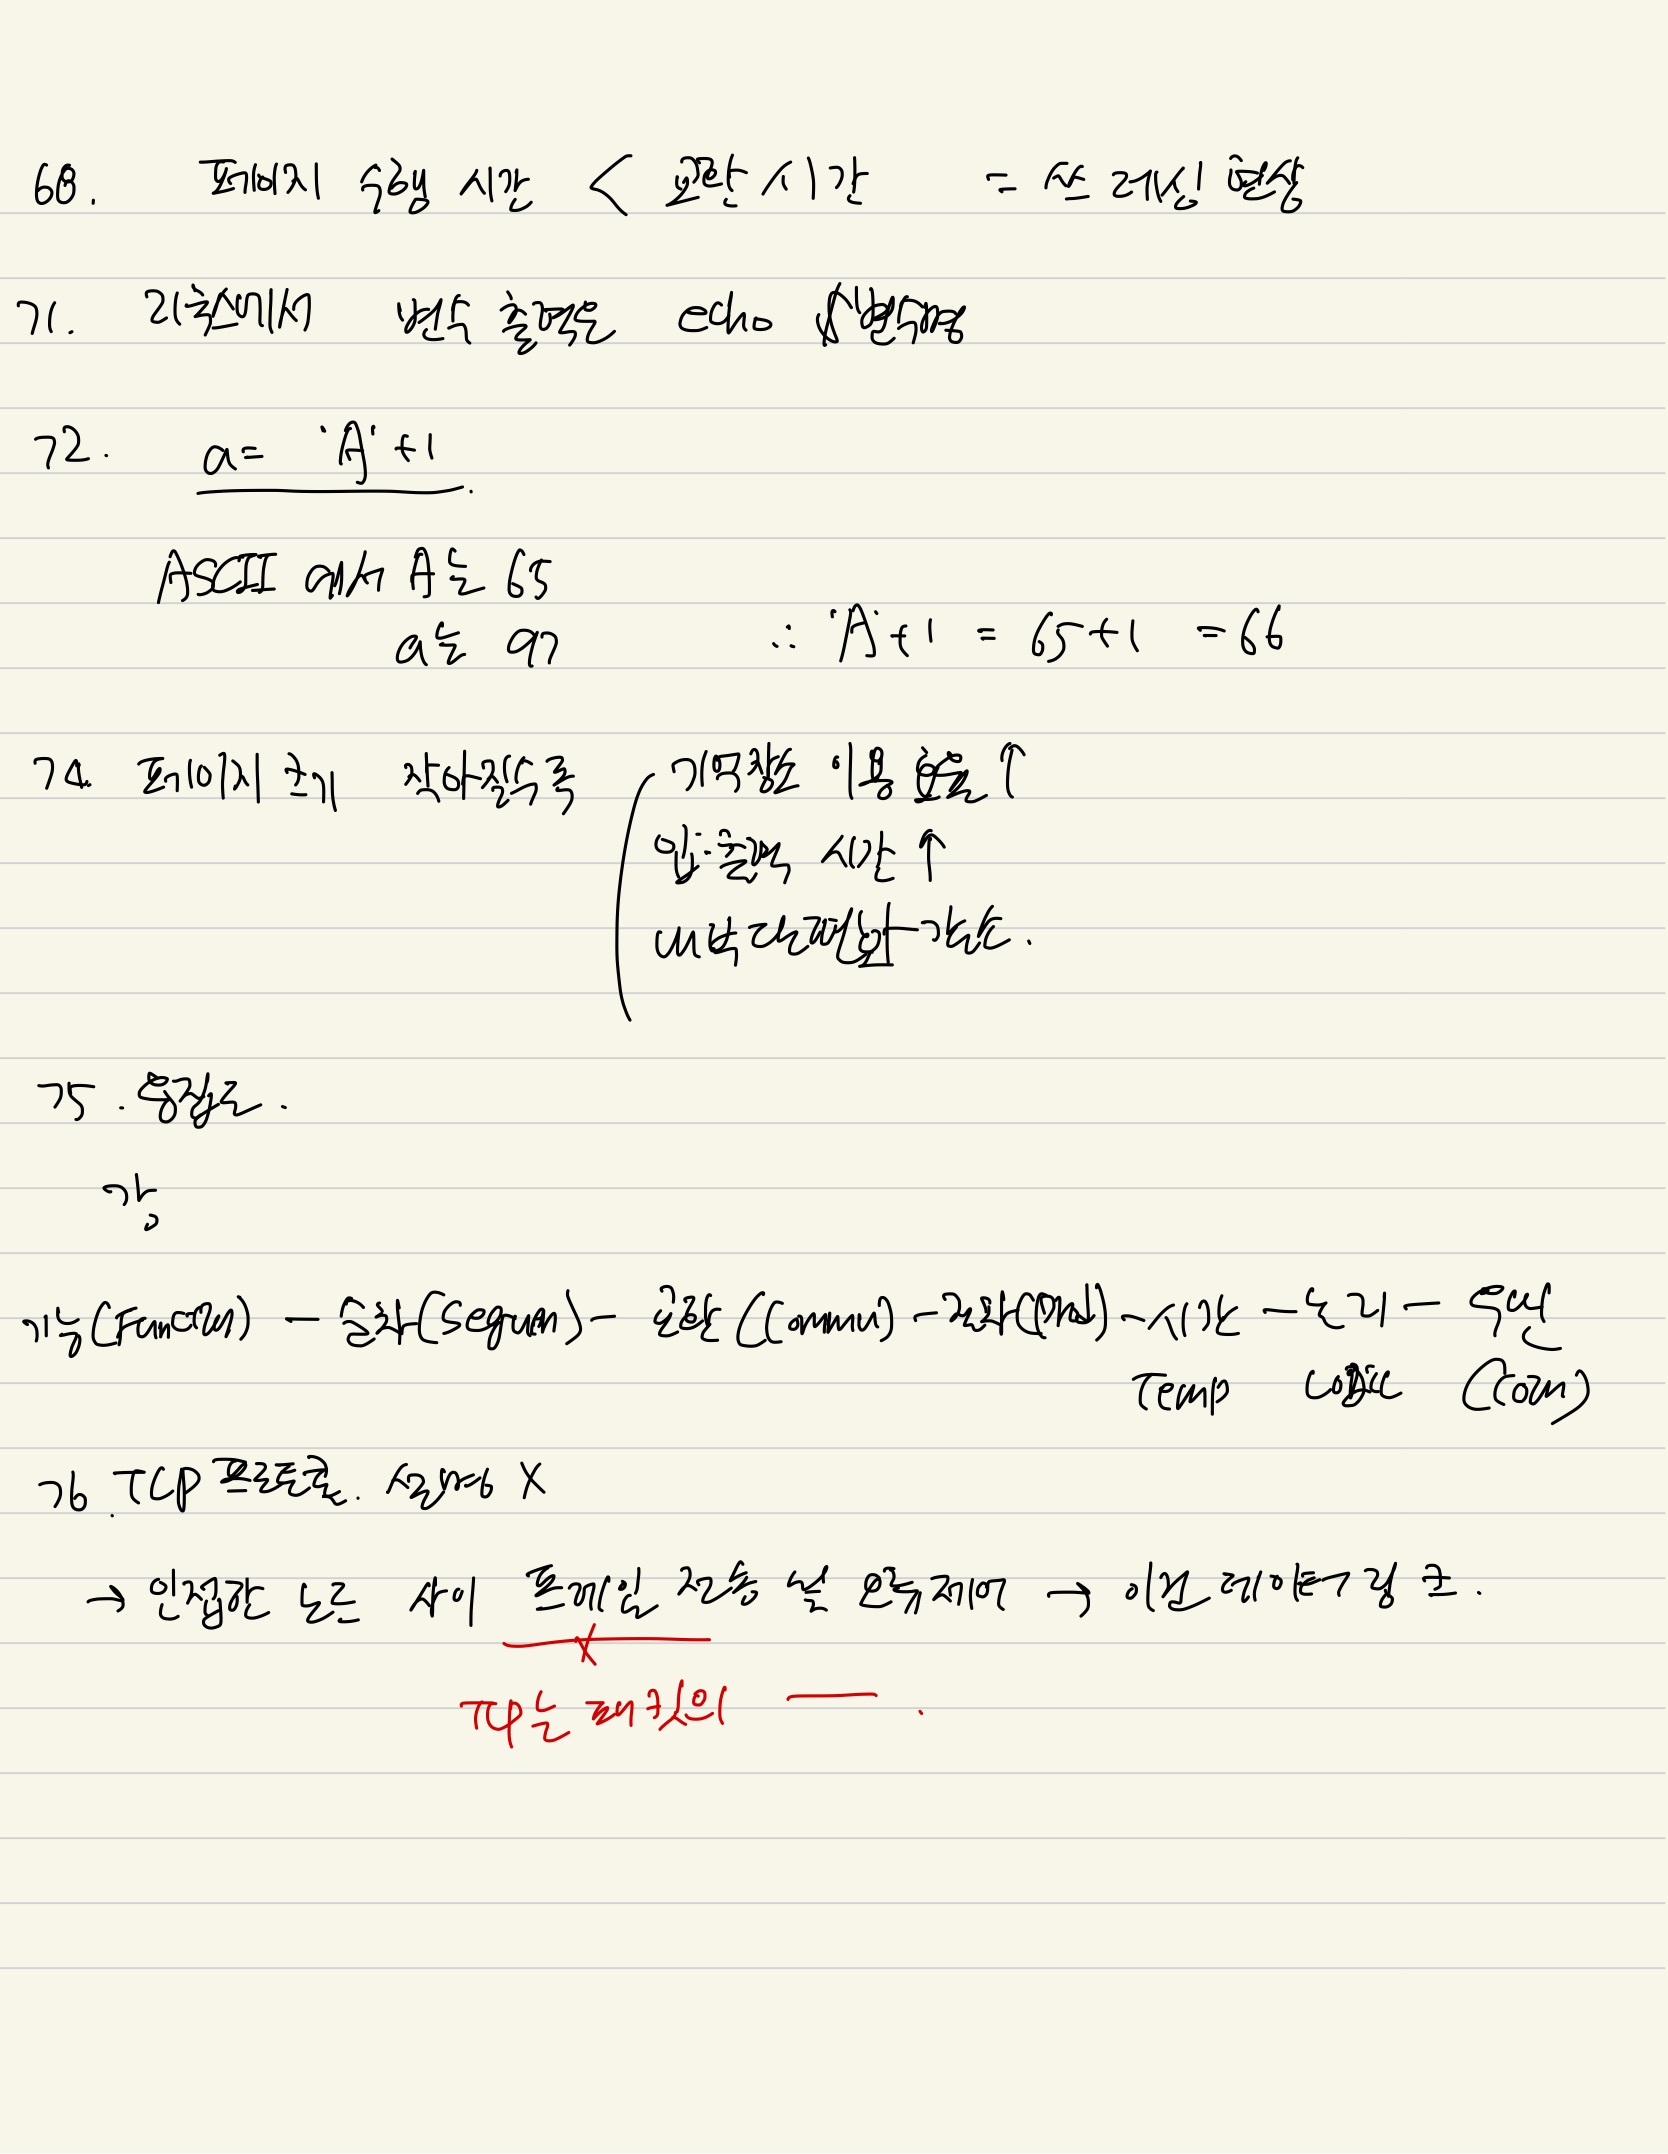 68. 페이지 수행 시간 < 교환 시간 = 쓰레싱 현상
71. 리눅스에서 변수 출력은 echo $변수명
72. a = 'A' + 1
ASCII 에서 A는 65
a는 97 ∴ 'A' + 1 = 65 + 1 = 66
74. 페이지 크기 작아질수록 기억장소 이용 효율 ↑
입·출력 시간 ↑
내부 단편화 감소.
75. 응집도.
강
기능(Function) - 순차(Sequen) - 교환(Commu) - 절차(Prod) - 시간 - 논리 - 우연
Temp Logic (Coin)
76. TCP 프로토콜. 설명 X
→ 인접한 노드 사이 프레임 전송 및 오류제어 → 이건 데이터링크.
X
TCP는 패킷의 ㅡ .